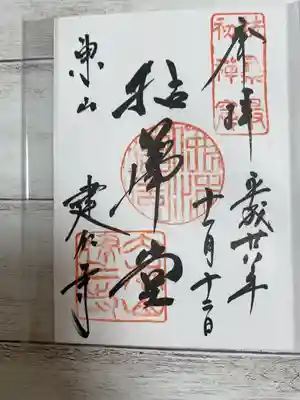 奉拝
平成廿八年
十一月十二日
拈華堂
東山
建仁寺